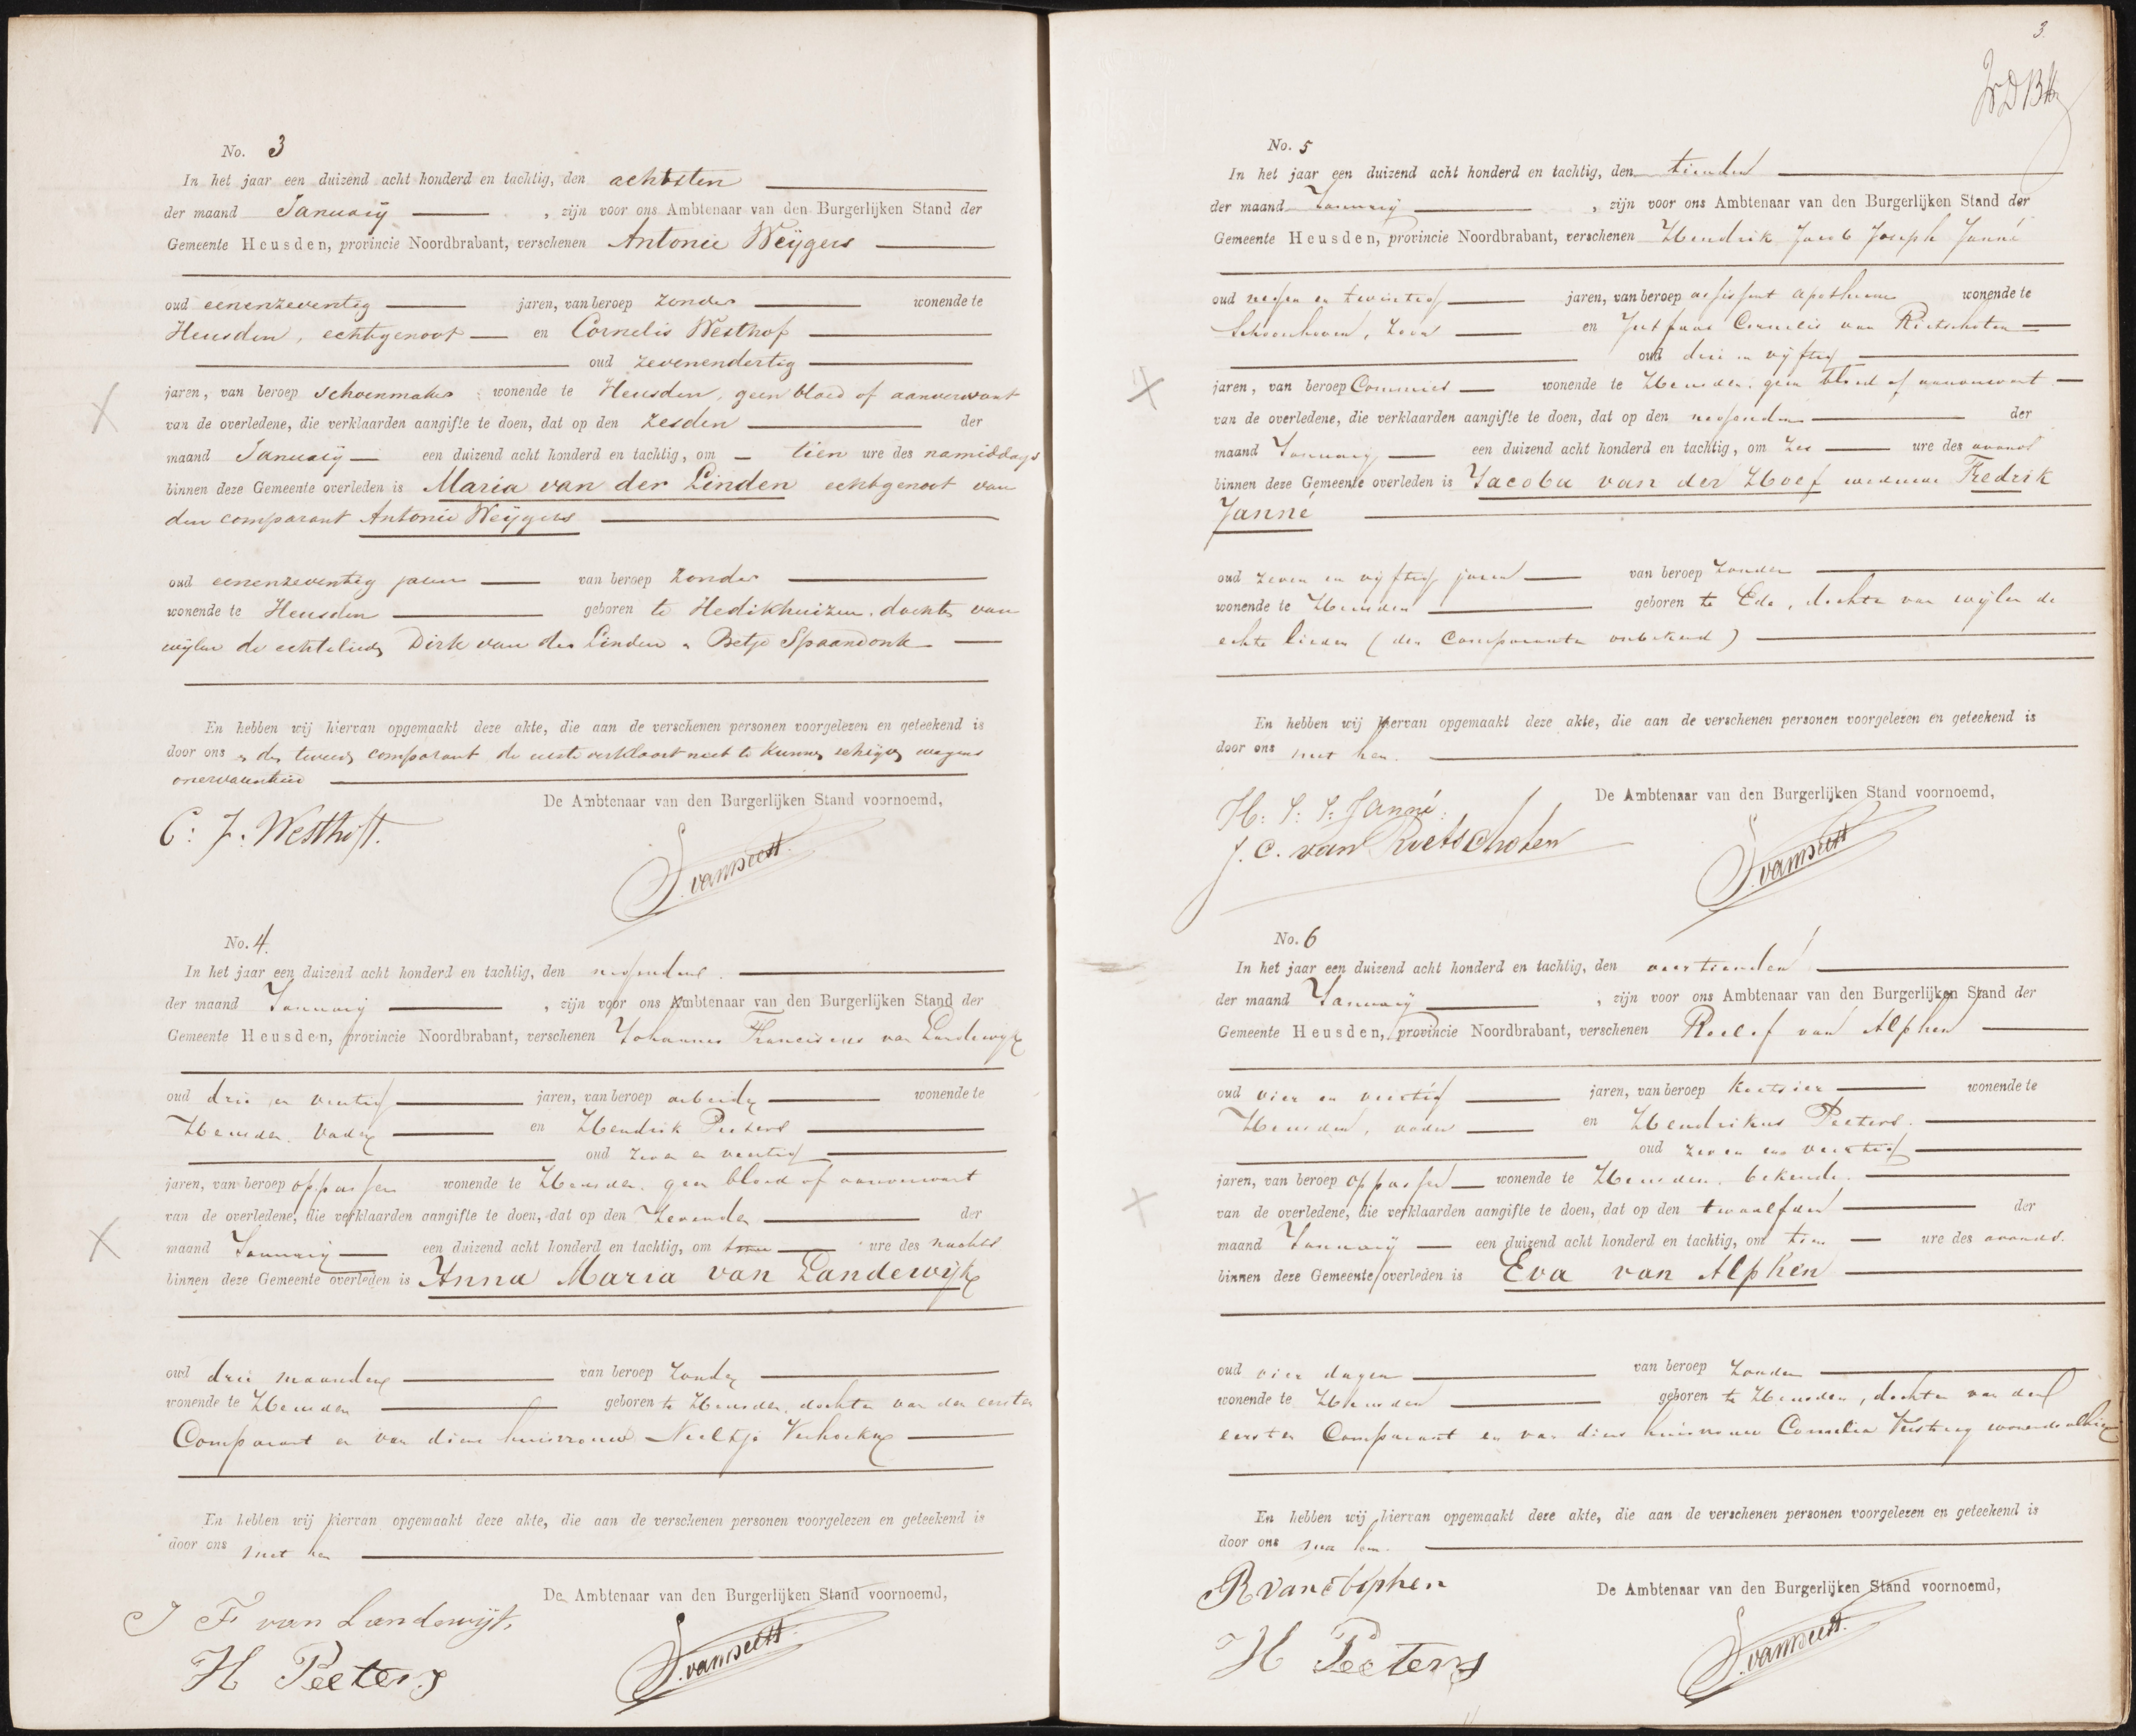 No. 3
In het jaar een duizend acht honderd en tachtig, den achtsten
der maand Januarij , zijn voor ons Ambtenaar van den Burgerlijken Stand der
Gemeente Heusden, provincie Noordbrabant, verschenen Antonie Weijgers
oud eenenzeventig jaren, van beroep zonder wonende te
Heusden, echtgenoot en Cornelis Westhof
oud zevenendertig
jaren, van beroep schoenmaker wonende te Heusden, geen bloed of aanverwant
van de overledene, die verklaarden aangifte te doen, dat op den zesden der
maand Januarij een duizend acht honderd en tachtig, om tien ure des namiddags
binnen deze Gemeente overleden is Maria van der Linden echtgenoot van
den comparant Antonie Weijgers
oud eenenzeventig jaren van beroep zonder
wonende te Heusden geboren te Hedikhuizen, dochter van
wijlen de echtelieden Dirk van der Linden & Betje Spaandonk
En hebben wij hiervan opgemaakt deze akte, die aan de verschenen personen voorgelezen en geteekend is
door ons & den tweeden comparant de eerste verklaart niet te kunnen schrijven wegens
onervarenheid
De Ambtenaar van den Burgerlijken Stand voornoemd,
C: J. Westhoff.
No. 4.
In het jaar een duizend acht honderd en tachtig, den negenden
der maand Januarij , zijn voor ons Ambtenaar van den Burgerlijken Stand der
Gemeente Heusden, provincie Noordbrabant, verschenen Johannes Franciscus van Landewijk
oud drie en veertig jaren, van beroep arbeider wonende te
Heusden, vader en Hendrik Peeters
oud zeven en veertig
jaren, van beroep oppasser wonende te Heusden, geen bloed of aanverwant
van de overledene, die verklaarden aangifte te doen, dat op den zevenden der
maand Januarij een duizend acht honderd en tachtig, om ure des nachts
binnen deze Gemeente overleden is Anna Maria van Landewijk
oud drie maanden van beroep zonder
wonende te Heusden geboren te Heusden, dochter van den eersten
Comparant en van diens huisvrouw Neeltje Verhoeks
En hebben wij hiervan opgemaakt deze akte, die aan de verschenen personen voorgelezen en geteekend is
door ons met hen
De Ambtenaar van den Burgerlijken Stand voornoemd,
J F van Landewijk,
H Peeters
3
No. 5
In het jaar een duizend acht honderd en tachtig, den tienden
der maand Januarij , zijn voor ons Ambtenaar van den Burgerlijken Stand der
Gemeente Heusden, provincie Noordbrabant, verschenen Hendrik Jacob Joseph Janné
oud negen en twintig jaren, van beroep assistent apotheker wonende te
Schoonhoven, zoon en Jutfaas Cornelis van Rietschoten
oud drie en vijftig
jaren, van beroep Commies wonende te Heusden, geen bloed of aanverwant
van de overledene, die verklaarden aangifte te doen, dat op den negenden der
maand Januarij een duizend acht honderd en tachtig, om zes ure des avonds
binnen deze Gemeente overleden is Jacoba van der Hoef weduwe Fredrik
Janné
oud zeven en vijftig jaren van beroep zonder
wonende te Heusden geboren te Ede, dochter van wijlen de
echte lieden (den Comparanten onbekend)
En hebben wij hiervan opgemaakt deze akte, die aan de verschenen personen voorgelezen en geteekend is
door ons met hen.
De Ambtenaar van den Burgerlijken Stand voornoemd,
H: J: J: Janné:
J. C. van Rietschoten
No. 6
In het jaar een duizend acht honderd en tachtig, den veertienden
der maand Januarij , zijn voor ons Ambtenaar van den Burgerlijken Stand der
Gemeente Heusden, provincie Noordbrabant, verschenen Roelof van Alphen
oud vier en veertig jaren, van beroep koetsier wonende te
Heusden, vader en Hendrikus Peeters.
oud zeven en veertig
jaren, van beroep oppasser wonende te Heusden, bekende.
van de overledene, die verklaarden aangifte te doen, dat op den twaalfden der
maand Januarij een duizend acht honderd en tachtig, om tien ure des avonds.
binnen deze Gemeente overleden is Eva van Alphen
oud vier dagen van beroep zonder
wonende te Heusden geboren te Heusden, dochter van den
eersten Comparant en van diens huisvrouw Cornelia wonende alhier
En hebben wij hiervan opgemaakt deze akte, die aan de verschenen personen voorgelezen en geteekend is
door ons met hen.
De Ambtenaar van den Burgerlijken Stand voornoemd,
R van Alphen
H Peeters